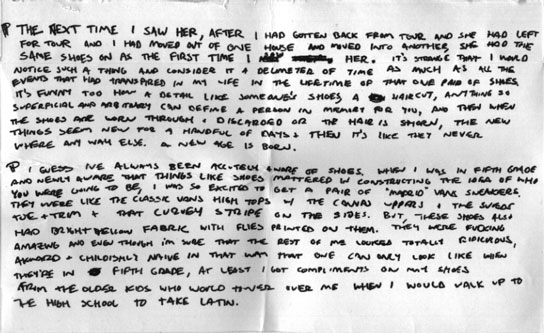 ¶ THE NEXT TIME I SAW HER, AFTER I HAD GOTTEN BACK FROM TOUR AND SHE HAD LEFT
FOR TOUR AND I HAD MOVED OUT OF ONE HOUSE AND MOVED INTO ANOTHER, SHE HAD THE
SAME SHOES ON AS THE FIRST TIME I HER. IT'S STRANGE THAT I WOULD
NOTICE SUCH A THING AND CONSIDER IT A DELIMETER OF TIME AS MUCH AS ALL THE
EVENTS THAT HAD TRANSPIRED IN MY LIFE IN THE LIFETIME OF THAT ONE PAIR OF SHOES.
IT'S FUNNY TOO HOW A DETAIL LIKE SOMEONE'S SHOES, A HAIRCUT, ANYTHING SO
SUPERFICIAL AND ARBITRARY CAN DEFINE A PERSON IN MEMORY FOR YOU, AND THEN WHEN
THE SHOES ARE WORN THROUGH & DISCARDED OR THE HAIR IS SHORN, THE NEW
THINGS SEEM NEW FOR A HANDFUL OF DAYS & THEN IT'S LIKE THEY NEVER
WHERE ANY WAY ELSE. A NEW AGE IS BORN.
¶ I GUESS I'VE ALWAYS BEEN ACCUTELY AWARE OF SHOES. WHEN I WAS IN FIFTH GRADE
AND NEWLY AWARE THAT THINGS LIKE SHOES MATTERED IN CONSTRUCTING THE IDEA OF WHO
YOU WERE GOING TO BE, I WAS SO EXCITED TO GET A PAIR OF "MADRID" VANS SNEAKERS.
THEY WERE LIKE THE CLASSIC VANS HIGH TOPS W/ THE CANVAS UPPERS & THE SUEDE
TOE + TRIM + THAT CURVEY STRIPE ON THE SIDES. BUT, THESE SHOES ALSO
HAD BRIGHT YELLOW FABRIC WITH FLIES PRINTED ON THEM. THEY WERE FUCKING
AMAZING AND EVEN THOUGH I'M SURE THAT THE REST OF ME LOOKED TOTALLY RIDICULOUS,
AKWARD & CHILDISHLY NAIVE IN THAT WAY THAT ONE CAN ONLY LOOK LIKE WHEN
THEY'RE IN FIFTH GRADE, AT LEAST I GOT COMPLIMENTS ON MY SHOES
FROM THE OLDER KIDS WHO WOULD HOVER OVER ME WHEN I WOULD WALK UP TO
THE HIGH SCHOOL TO TAKE LATIN.